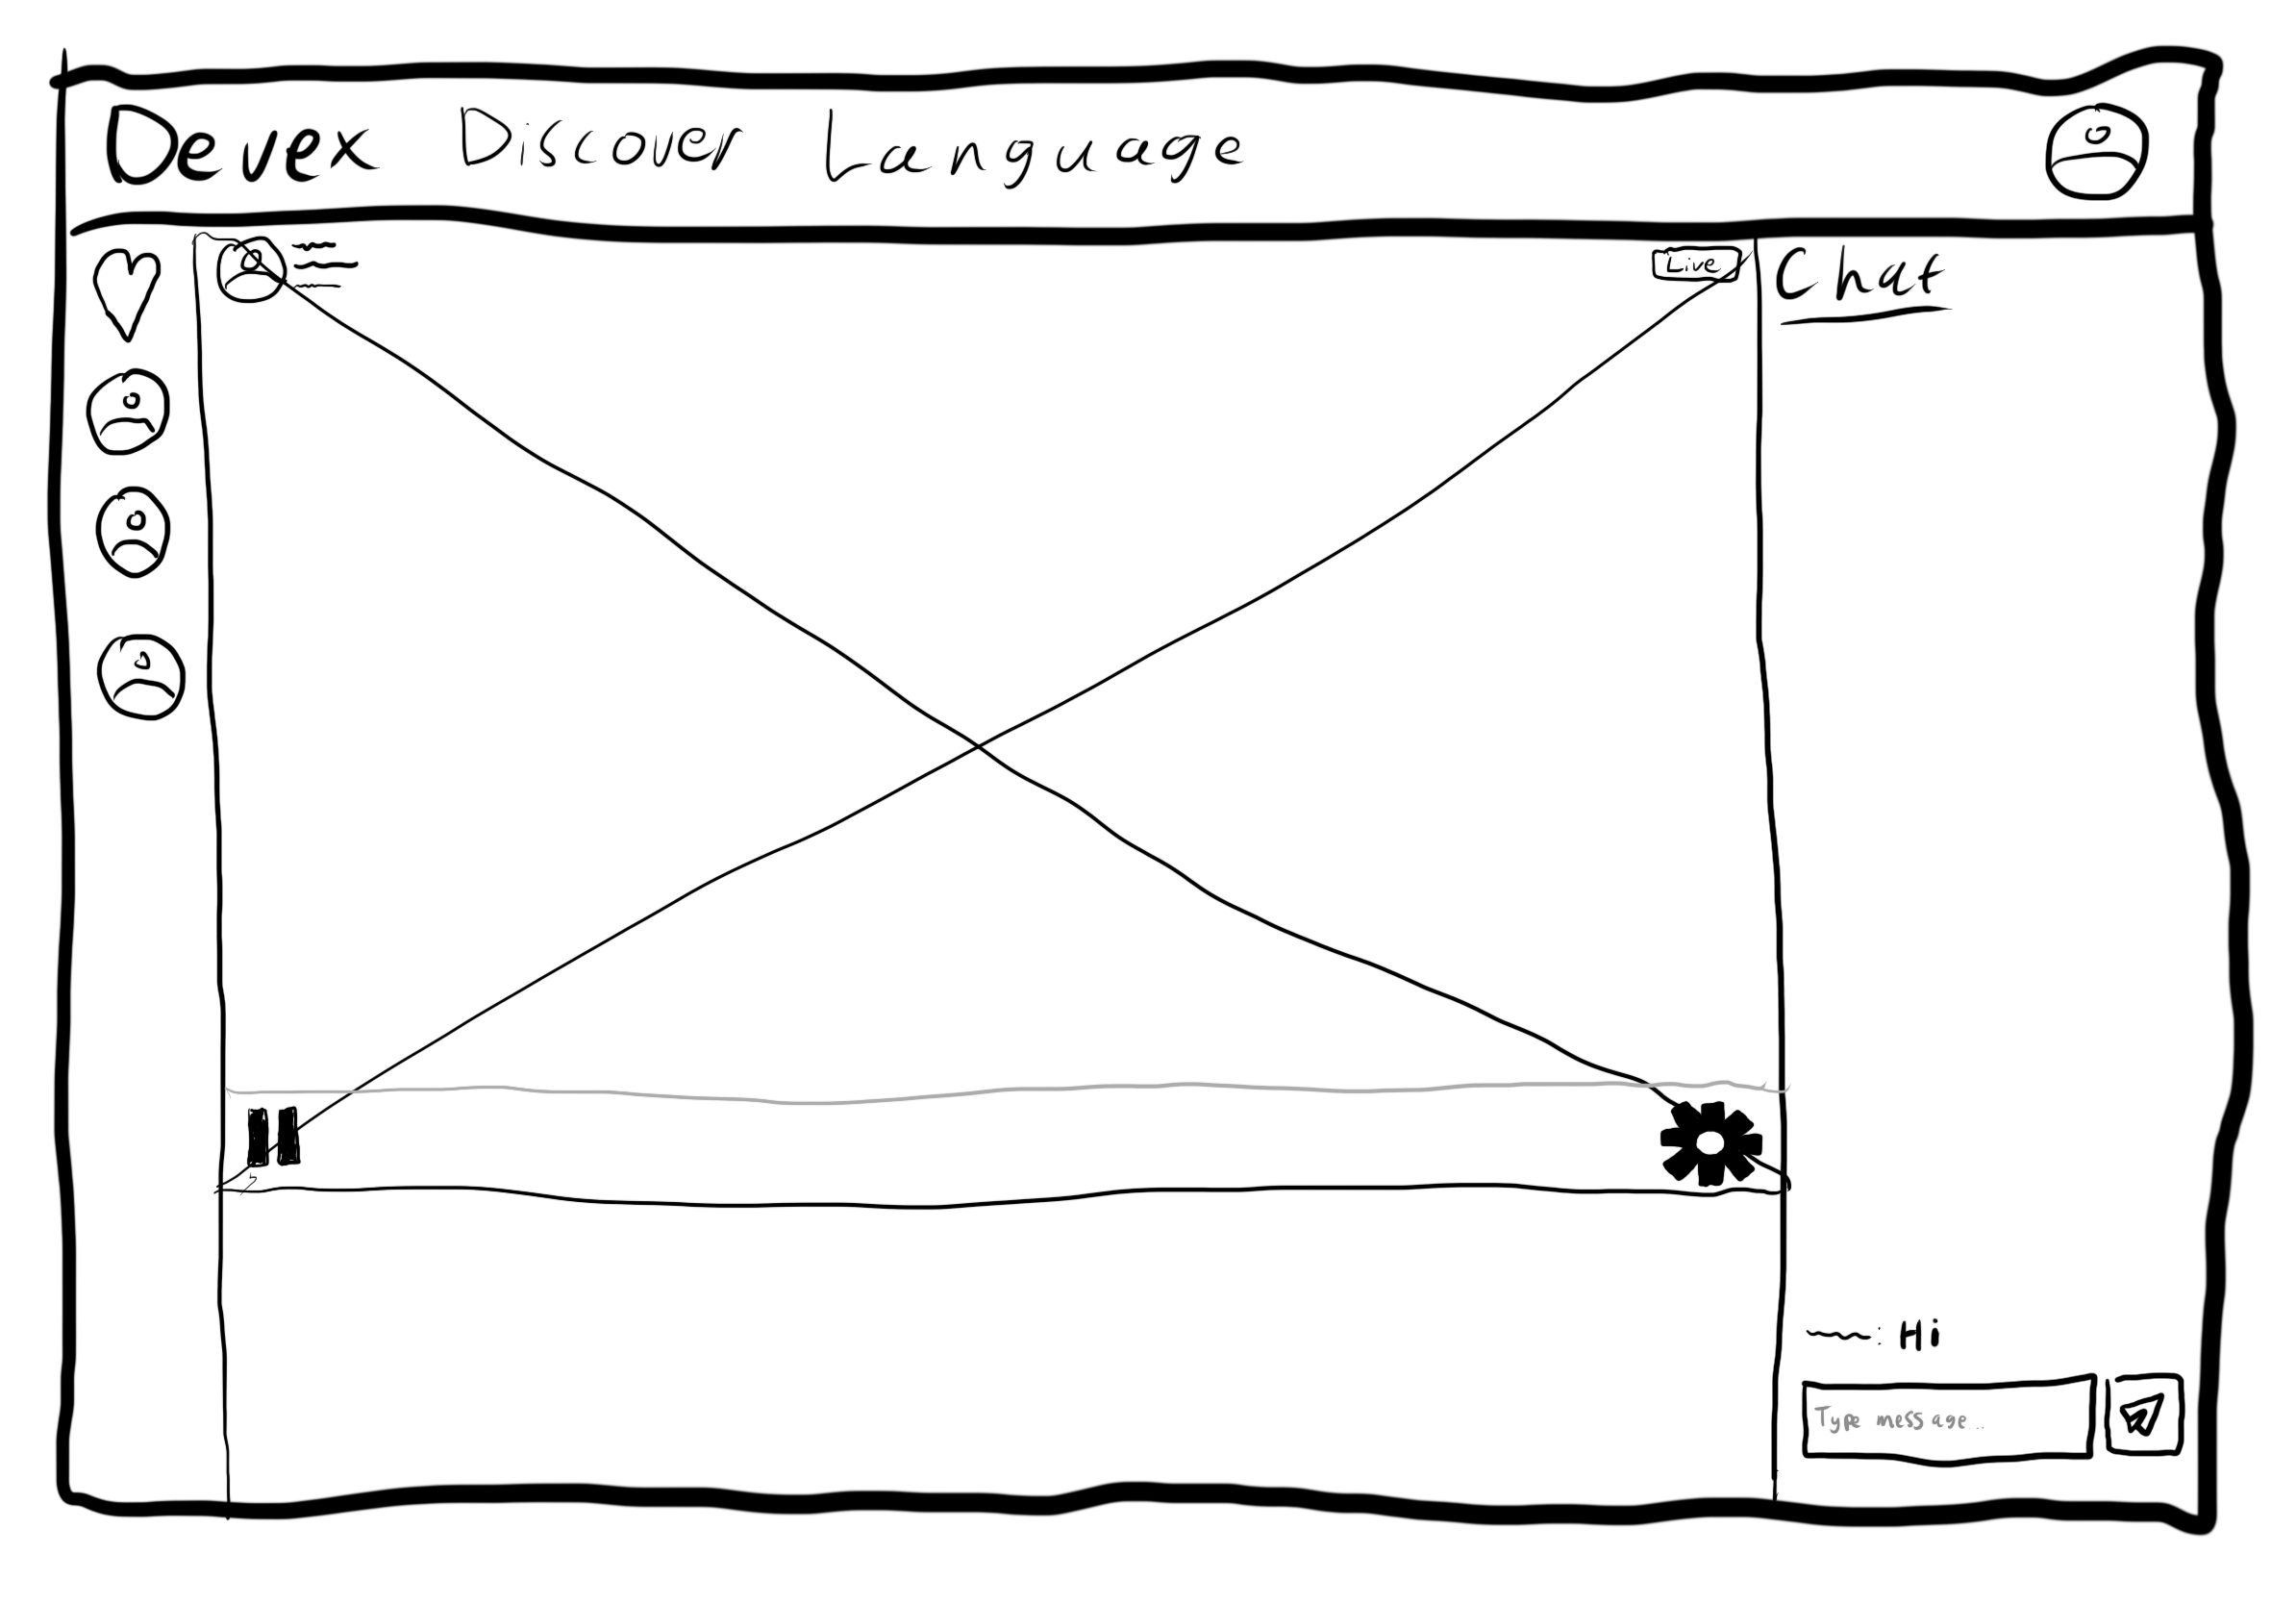 Devex Discover Language
Live
Chat
: Hi
Type message...